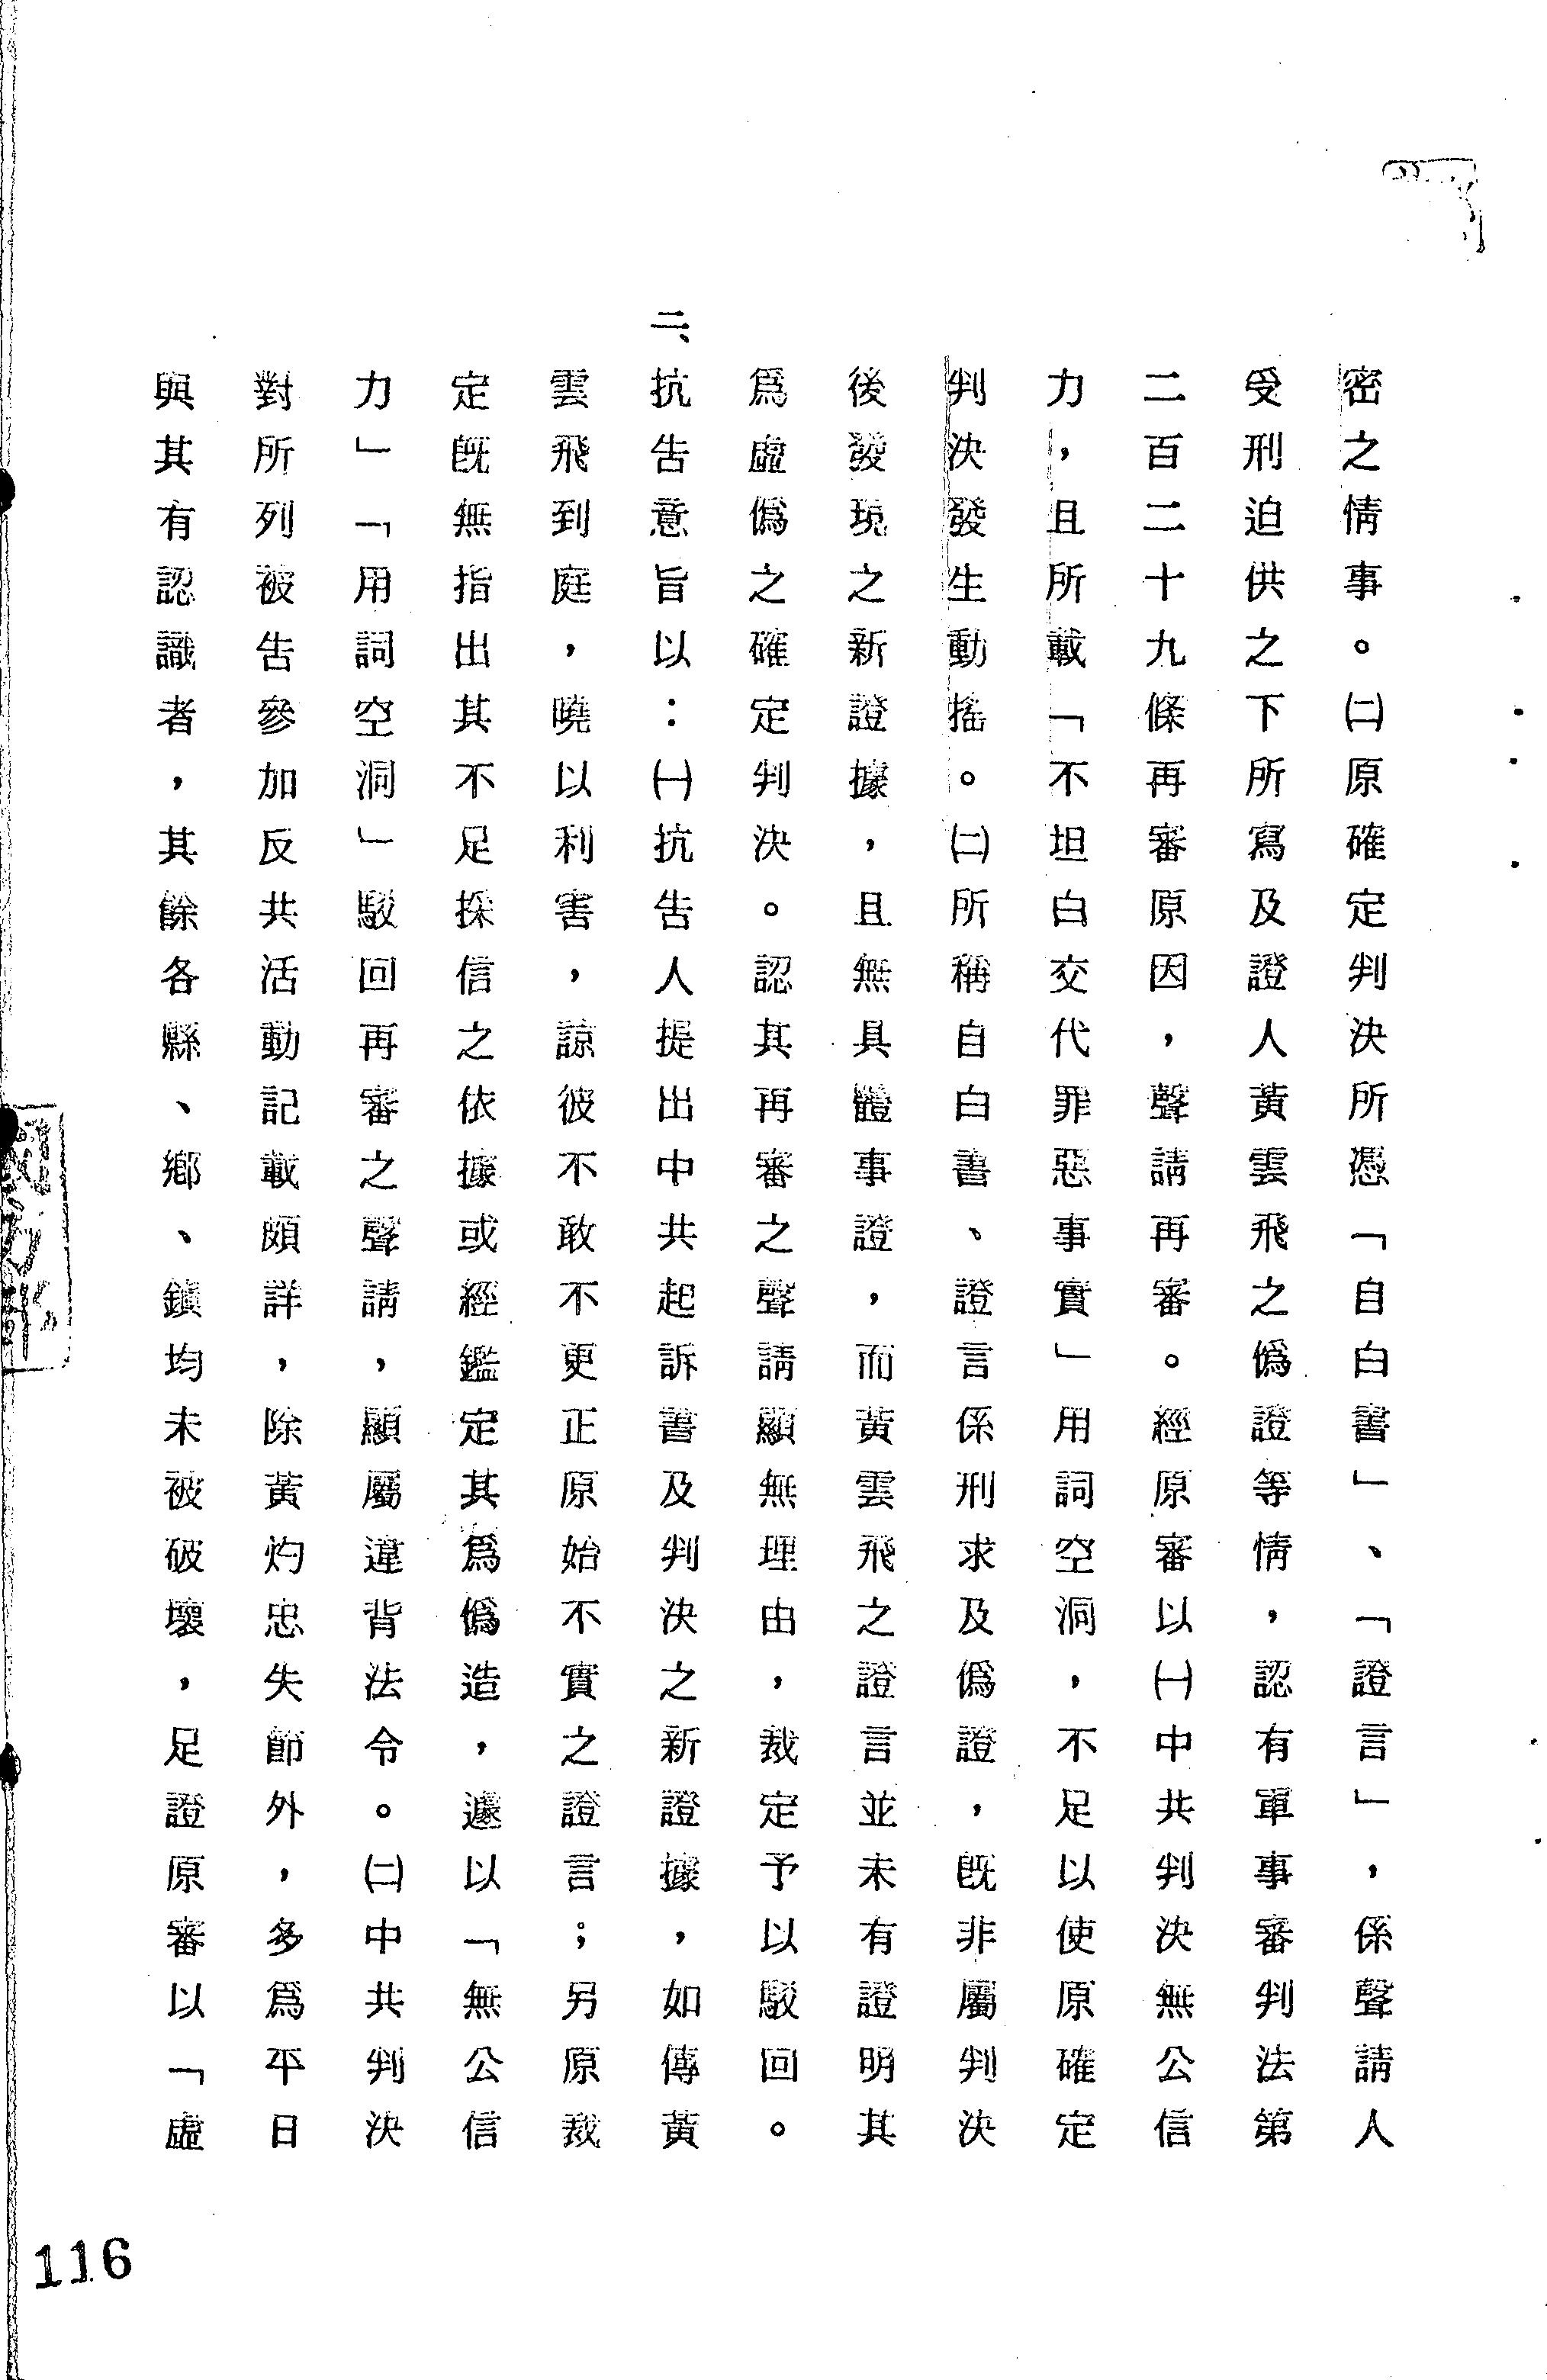 密之情事。㈡原確定判決所憑「自白書」、「證言」，係聲請人
受刑迫供之下所寫及證人黃雲飛之僞證等情，認有軍事審判法第
二百二十九條再審原因，聲請再審。經原審以㈠中共判決無公信
力，且所載「不坦白交代罪惡事實」用詞空洞，不足以使原確定
判決發生動搖。㈡所稱自白書、證言係刑求及僞證，既非屬判決
後發現之新證據，且無具體事證，而黃雲飛之證言並未有證明其
爲虛僞之確定判決。認其再審之聲請顯無理由，裁定予以駁回。
二、抗告意旨以：㈠抗告人提出中共起訴書及判決之新證據，如傳黃
雲飛到庭，曉以利害，諒彼不敢不更正原始不實之證言；另原裁
定既無指出其不足採信之依據或經鑑定其爲僞造，遽以「無公信
力」「用詞空洞」駁回再審之聲請，顯屬違背法令。㈡中共判決
對所列被告參加反共活動記載頗詳，除黃灼忠失節外，多爲平日
與其有認識者，其餘各縣、鄉、鎮均未被破壞，足證原審以「虛
116